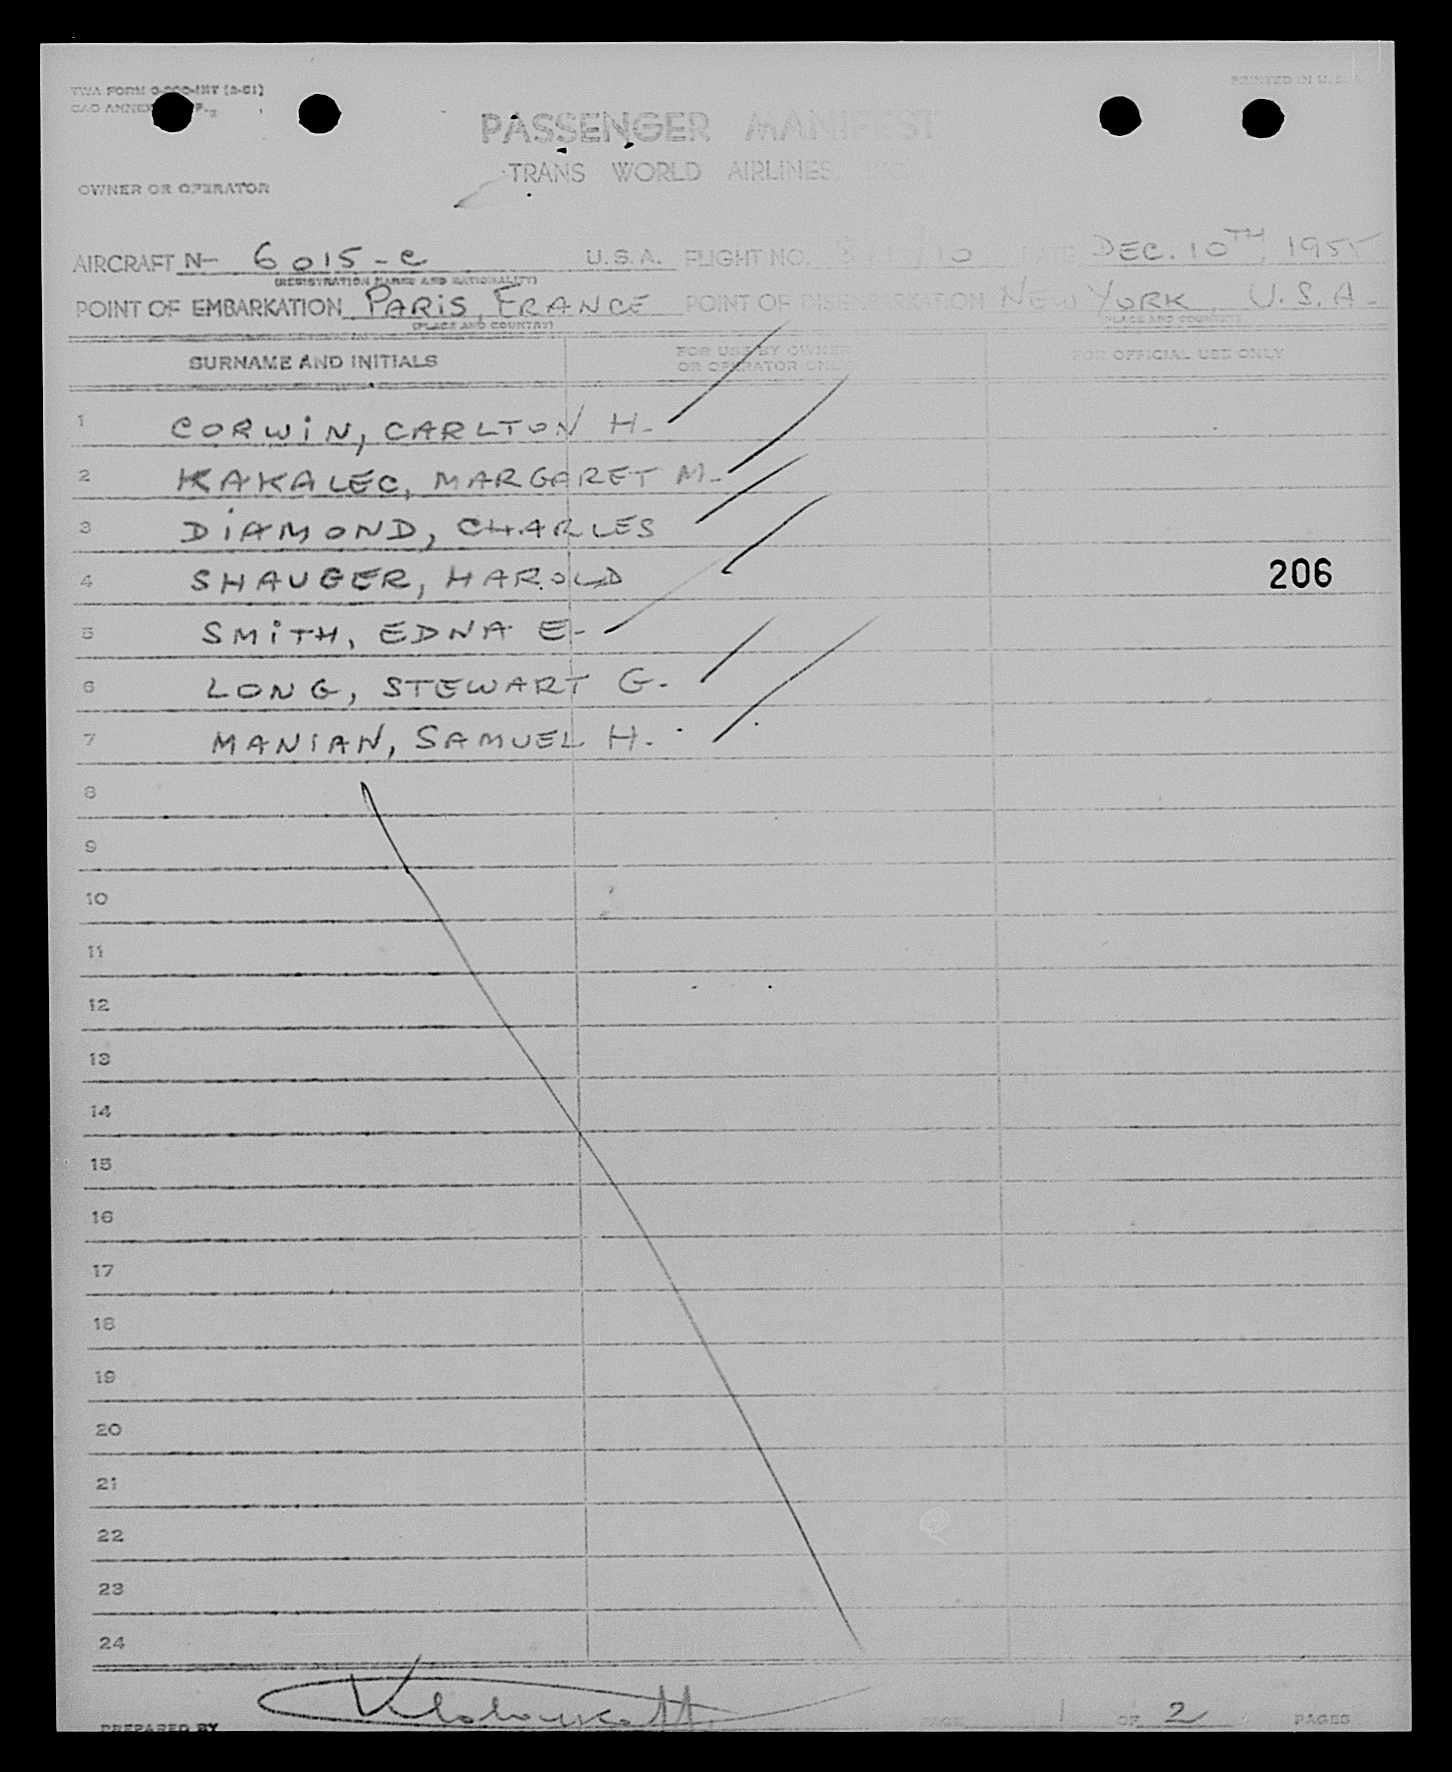 PRINTED IN U.S.A.
TWA FORM
PASSENGER MANIFEST
TRANS WORLD AIRLINES, INC.
OWNER OR OPERATOR
AIRCRAFT N- 6015-C U.S.A. FLIGHT NO. DATE DEC. 10TH, 1955
(REGISTRATION MARKS AND NATIONALITY)
POINT OF EMBARKATION PARIS, FRANCE POINT OF DISEMBARKATION NEW YORK, U.S.A.
(PLACE AND COUNTRY) (PLACE AND COUNTRY)
SURNAME AND INITIALS FOR USE BY OWNER FOR OFFICIAL USE ONLY
OR OPERATOR ONLY
1 CORWIN, CARLTON H.
2 KAKALEC, MARGARET M.
3 DIAMOND, CHARLES
4 SHAUGER, HAROLD 206
5 SMITH, EDNA E.
6 LONG, STEWART G.
7 MANIAN, SAMUEL H.
8
9
10
11
12
13
14
15
16
17
18
19
20
21
22
23
24
PREPARED BY PAGE 1 OF 2 PAGES